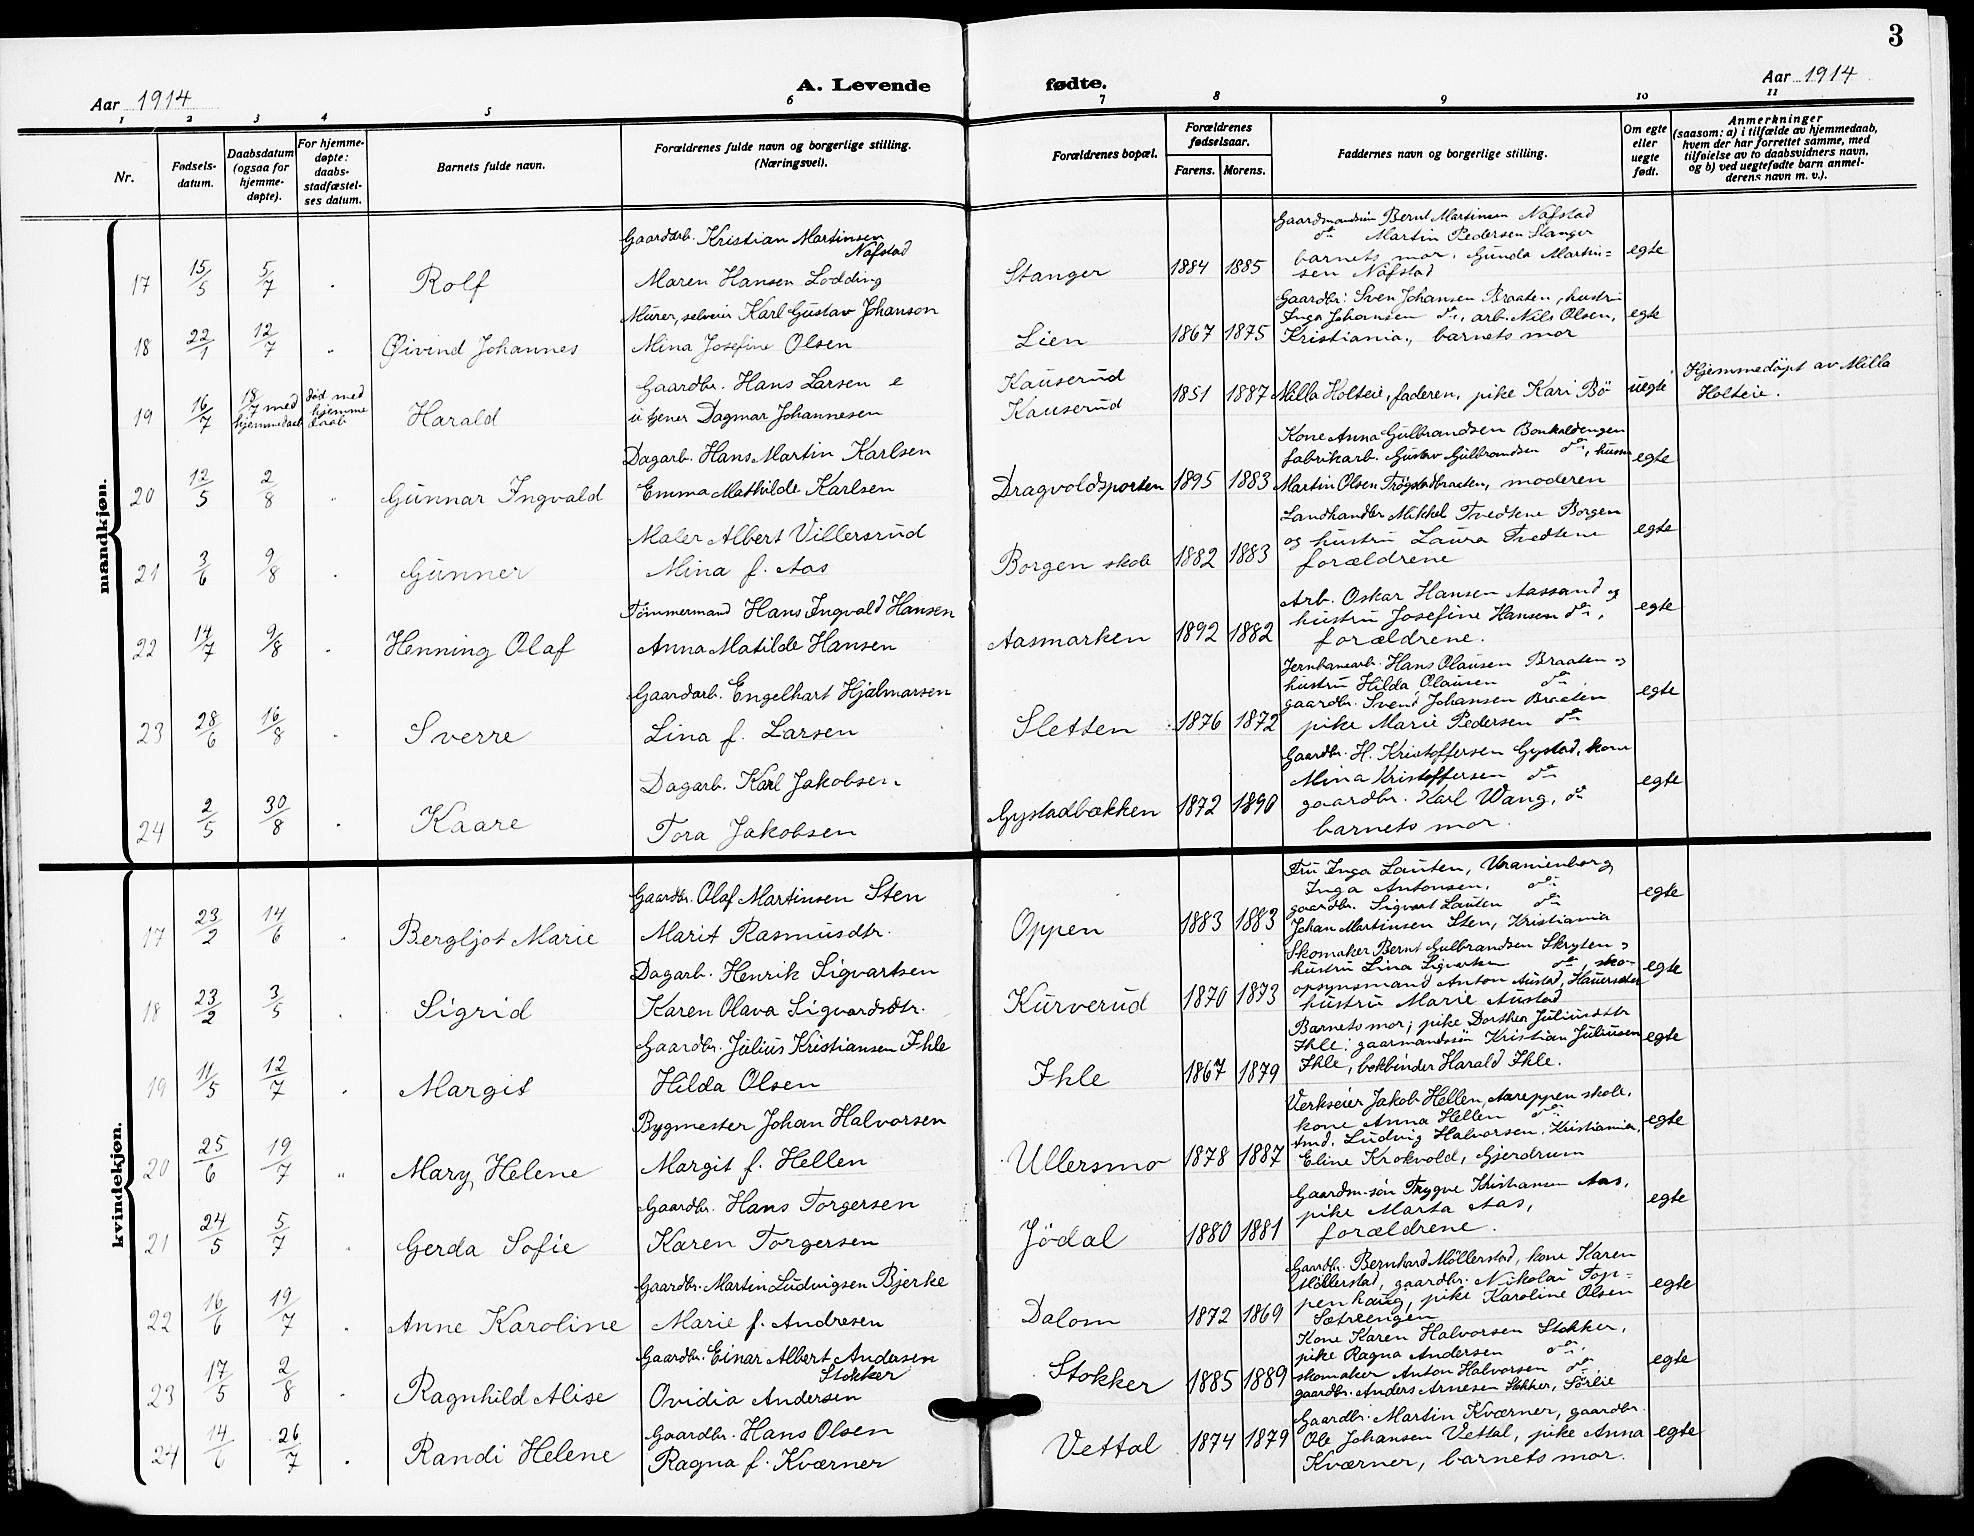 3
Aar 1914
A. Levende fødte.
Aar 1914
1 2 3 4 5 6 7 8 9 10 11
Nr.
Fødsels-
datum.
Daabsdatum
(ogsaa for
hjemme-
døpte).
For hjemme-
døpte:
daabs-
stadfæstel-
ses datum.
Barnets fulde navn.
Forældrenes fulde navn og borgerlige stilling.
(Næringsvei).
Forældrenes bopæl.
Forældrenes
fødselsaar.
Farens. Morens.
Faddernes navn og borgerlige stilling.
Om egte
eller
uegte
født.
Anmerkninger
(saasom: a) i tilfælde av hjemmedaab,
hvem der har forrettet samme, med
tilføielse av to daabsvidners navn,
og b) ved uegtefødte barn anmel-
derens navn m. v.).
mandkjøn.
17 15/5 5/7 Rolf
Gaardarb. Kristian Martinsen
Nafstad
Maren Hansen Lodding
Stanger 1884 1885
Gaardmandsøn Bernt Martinsen Nafstad
do Martin Pedersen Stanger
barnets mor, Gunda Martin=
sen Nafstad
egte
18 22/1 12/7 Øivind Johannes
Murer, selveier Karl Gustav Johanson
Mina Josefine Olsen
Lien 1867 1875
Gaardbr. Sven Johansen Braaten, hustru
Inga Johansen do, arb. Nils Olsen,
Kristiania, barnets mor
egte
19 16/7 18/7 med
hjemmedaab
død med
hjemme
daab
Harald
Gaardbr. Hans Larsen e
u tjener Dagmar Johannesen
Kauserud
Kauserud
1851 1887
Milla Holteie, faderen, pike Kari Bö
uegte
Hjemmedøpt av Milla
Holteie.
20 12/5 2/8 Gunnar Ingvald
Dagarb. Hans Martin Karlsen
Emma Mathilde Karlsen
Dragvoldsporten 1895 1883
Kone Anna Gulbrandsen Bonkaldengen
fabrikarb. Gustav Gulbrandsen do, husm
Martin Olsen Trøgstadbraaten, moderen
egte
21 3/6 9/8 Gunner
Maler Albert Villersrud
Mina f. Aas
Borgen skole 1882 1883
Landhandler Mikkel Tvedtene Borgen
og hustru Laura Tvedtene
forældrene
egte
22 14/7 9/8 Henning Olaf
Tømmermand Hans Ingvald Hansen
Anna Matilde Hansen
Aasmarken 1892 1882
Arb. Oskar Hansen Aassand og
hustru Josefine Hansen do,
forældrene.
egte
23 28/6 16/8 Sverre
Gaardarb. Engelhart Hjalmarsen
Lina f. Larsen
Sletten 1876 1872
Jernbanearb. Hans Olausen Braaten og
hustru Hilda Olausen do
gaardbr. Svend Johansen Braaten
pike Marie Pedersen do
egte
24 2/5 30/8 Kaare
Dagarb. Karl Jakobsen
Tora Jakobsen
Gystadbækken 1872 1890
Gaardbr. H. Kristoffersen Gystad, kone
Mina Kristoffersen do
gaardbr. Karl Wang, do
barnets mor.
egte
kvindekjøn.
17 23/2 14/6 Bergljot Marie
Gaardbr. Olaf Martinsen Sten
Marit Rasmusdtr.
Oppen 1883 1883
Fru Inga Lauten, Uranienborg,
Inga Antonsen, do
gaardbr. Sigvart Lauten do
Johan Martinsen Sten, Kristiania
egte
18 23/2 3/5 Sigrid
Dagarb. Henrik Sigvartsen
Karen Olava Sigvardsdtr.
Kurverud 1870 1873
Skomaker Bernt Gulbrandsen Skryten og
hustru Lina Sigvartsen do, sko-
opsynsmand Anton Austad, Hauerseter
hustru Marie Austad
egte
19 11/5 12/7 Margit
Gaardbr. Julius Kristiansen Ihle
Hilda Olsen
Ihle 1867 1879
Barnets mor; pike Dorthea Juliusdtr
Ihle; gaarmandssön Kristian Juliusen
Ihle, bokbinder Harald Ihle.
egte
20 25/6 19/7 Mary Helene
Bygmester Johan Halvorsen
Margit f. Hellen
Ullersmo 1878 1887
Verkseier Jakob Hellen, Aareppen skole,
kone Anna Hellen do
Amd. Ludvig Halvorsen, Kristiania,
Eline Krokvold, Gjerdrum
egte
21 24/5 5/7 Gerda Sofie
Gaardbr. Hans Torgersen
Karen Torgersen
Jödal 1880 1881
Gaardm.søn Trygve Kristiansen Aas,
pike Marta Aas,
forældrene.
egte
22 16/6 19/7 Anne Karoline
Gaardbr. Martin Ludvigsen Bjerke
Marie f. Andresen
Dalom 1872 1869
Gaardbr. Bernhard Möllerstad, kone Karen
Möllerstad, gaardbr. Nikolai Top=
penhaug, pike Karoline Olsen
Sætreengen
egte
23 17/5 2/8 Ragnhild Alise
Gaardbr. Einar Albert Andersen
Stokker
Ovidia Andersen
Stokker 1885 1889
Kone Karen Halvorsen Stokker,
pike Ragna Andersen do,
skomaker Anton Halvorsen do,
gaardbr. Anders Arnesen Stokker, Sörlie
egte
24 14/6 26/7 Randi Helene
Gaardbr. Hans Olsen
Ragna f. Kværner
Vettal 1874 1879
Gaardbr. Martin Kværner, gaardbr.
Ole Johansen Vettal, pike Anna
Kværner, barnets mor.
egte